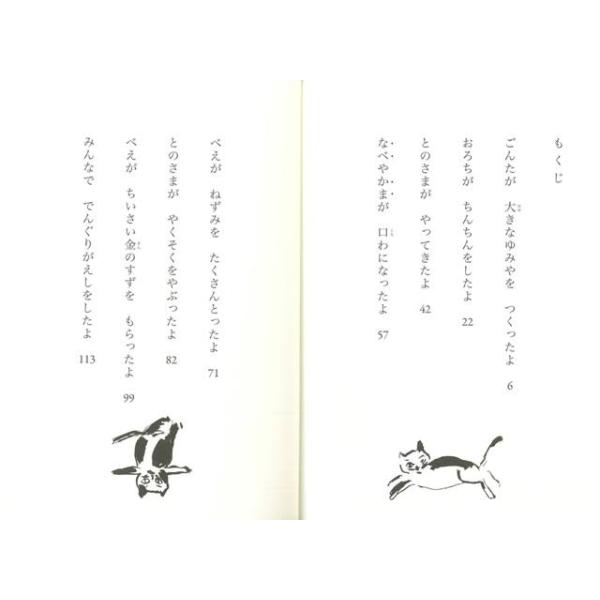 もくじ
ごんたが 大きなゆみやを つくったよ 6
おろちが ちんちんをしたよ 22
とのさまが やってきたよ 42
なべやかまが 口わになったよ 57
べえが ねずみを たくさんとったよ 71
とのさまが やくそくをやぶったよ 82
べえが ちいさい金のすずを もらったよ 99
みんなで でんぐりがえしをしたよ 113